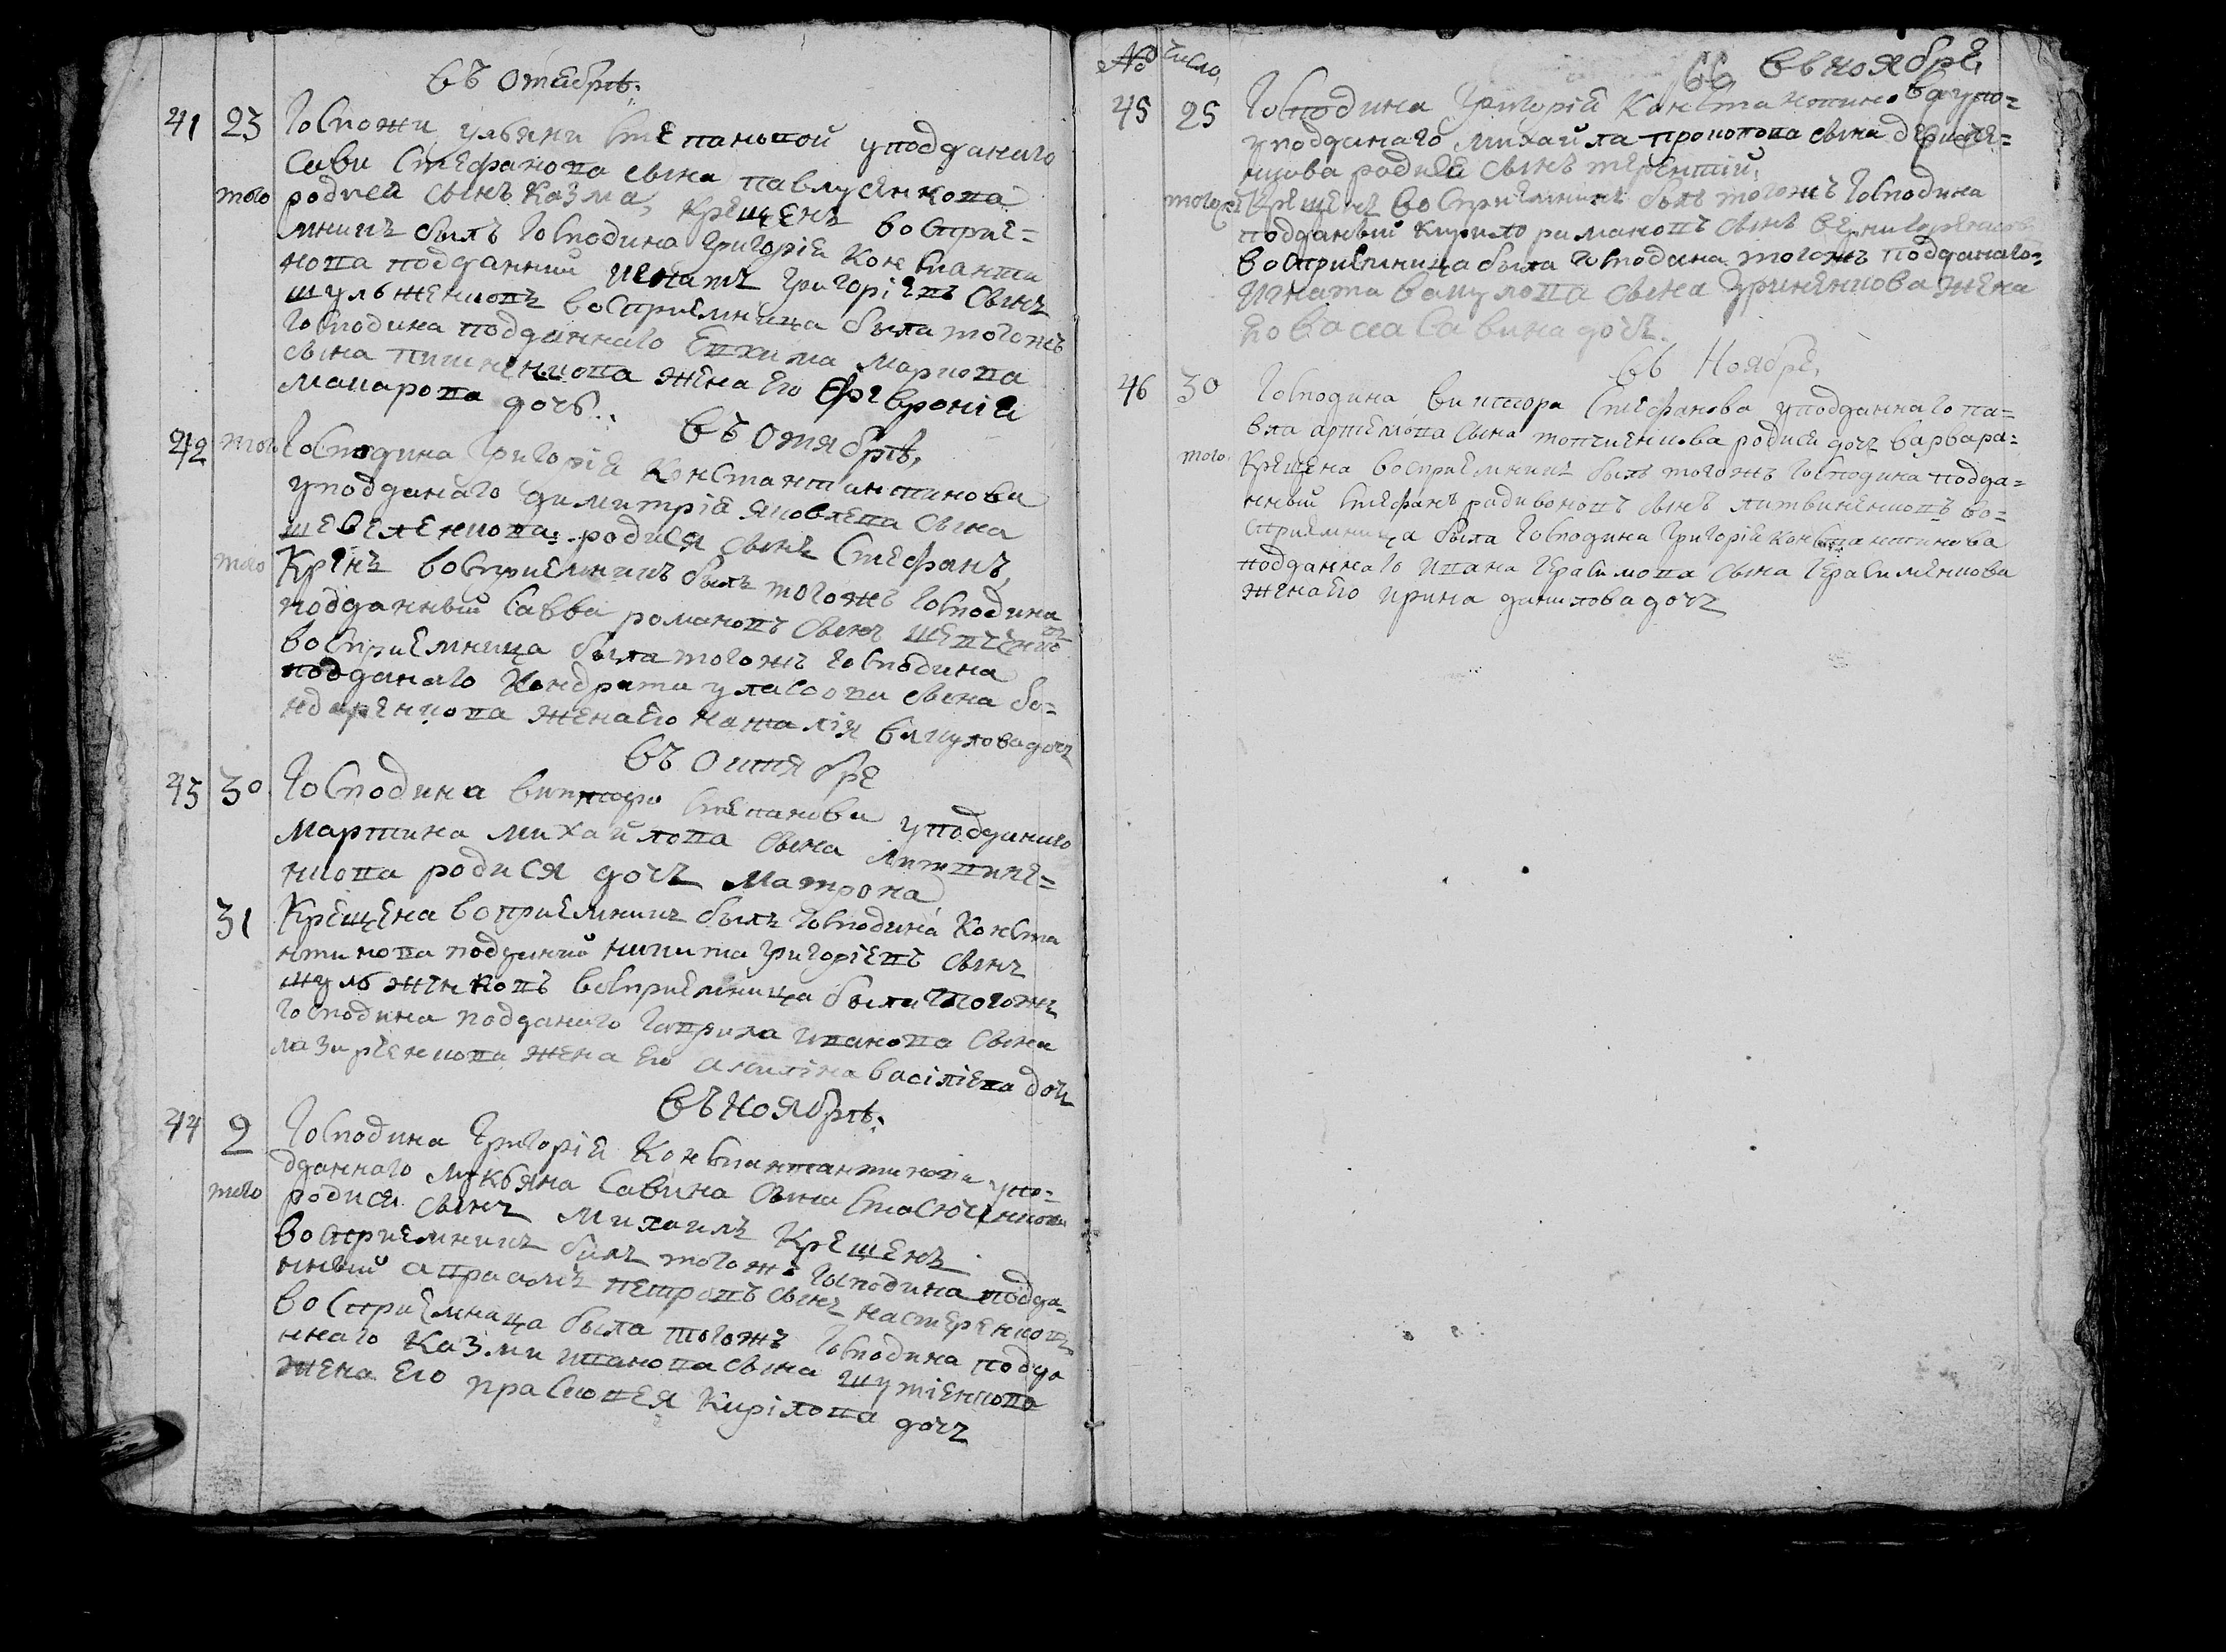 въ Октябрѣ;
41 23 Госпожи ульяни степановой уподданаго
сави Стефанова сына павлусенкова
того родися сынъ Казма, Крещенъ восприе=
мникъ былъ Господина Григорія Константи
нова подданний Игнатъ Григоріевъ сынъ
шульженковъ восприемница была тогожъ
Господина подданнаго Евхима Маркова
сына жена его Февронія
Макарова дочь.
въ Октябрѣ,
42 того Господина Григорія Константинтинова
уподданаго Димитрія яковлева сына
шевеленкова: родися сынъ Стефанъ,
того Крщнъ восприемникъ былъ тогожъ Господина
подданный Савва романовъ сынъ
восприемница была тогожъ Господина
подданаго Кондрата уласова сына бо=
ндаренкова жена его наталія вакулова дочъ
въ Октябре
43 30 Господина виктора степанова уподданаго
мартина михайлова сына литвине=
нкова родися дочъ Матрона
31 Крещена воприемникъ былъ Господина Конста
нтинова подданий никита григоріевъ сынъ
шульженковъ восприемница была тогожъ
Господина подданаго Гаврила иванова сына
лазиренкова жена его акилина василіева дочъ
въ Ноябрѣ;
44 2 Господина Григорія Константантинова упо=
дданнаго лукьяна Савина сына стасюченкова
того родися сынъ Михаилъ Крещенъ
восприемникъ билъ тогожъ Господина подда=
нный аврамъ петровъ сынъ нестеренковъ
восприемница была тогожъ Господина подда
ннаго Казми иванова сына шутіенкова
жена его прасковея Кирілова дочъ
№ число, 66 въ ноябре,
45 25 Господина Григорія Константинова упо=
уподданаго михайла прокопова сына
родися сынъ терентий,
того Крещенъ восприемникъ былъ тогожъ Господина
подданный Кирило романовъ сынъ
восприемница была Господина тогожъ подданаго=
Игната вакулова сына Гриненкова жена
его васа Савина дочъ.
въ Ноябре,
46 30 Господина виктора Стефанова уподданнаго па=
вла артемова сына топчиенкова родися дочъ варвара=
того Крещена восприемникъ былъ тогожъ Господина подда=
нный стефанъ радивоновъ сынъ литвиненковъ во=
сприемница была Господина Григорія Константинова
подданнаго ивана Герасимова сына Герасименкова
жена его ирина данилова дочъ